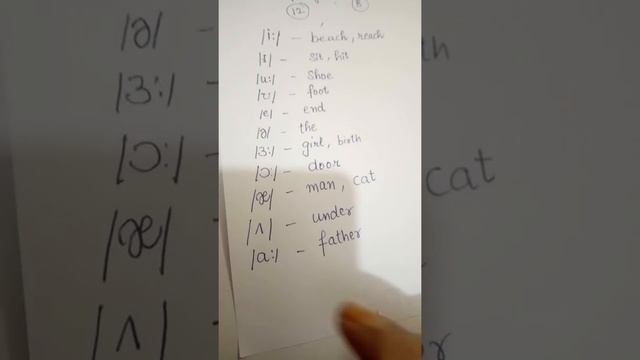 12 8
|i:| – beach, reach
|ɪ| – sit, hit
|u:| – Shoe
|ʊ| – foot
|e| – end
|ə| – the
|ɜ:| – girl, birth
|ɔ:| – door
|æ| – man, cat
|ʌ| – under
|a:| – father